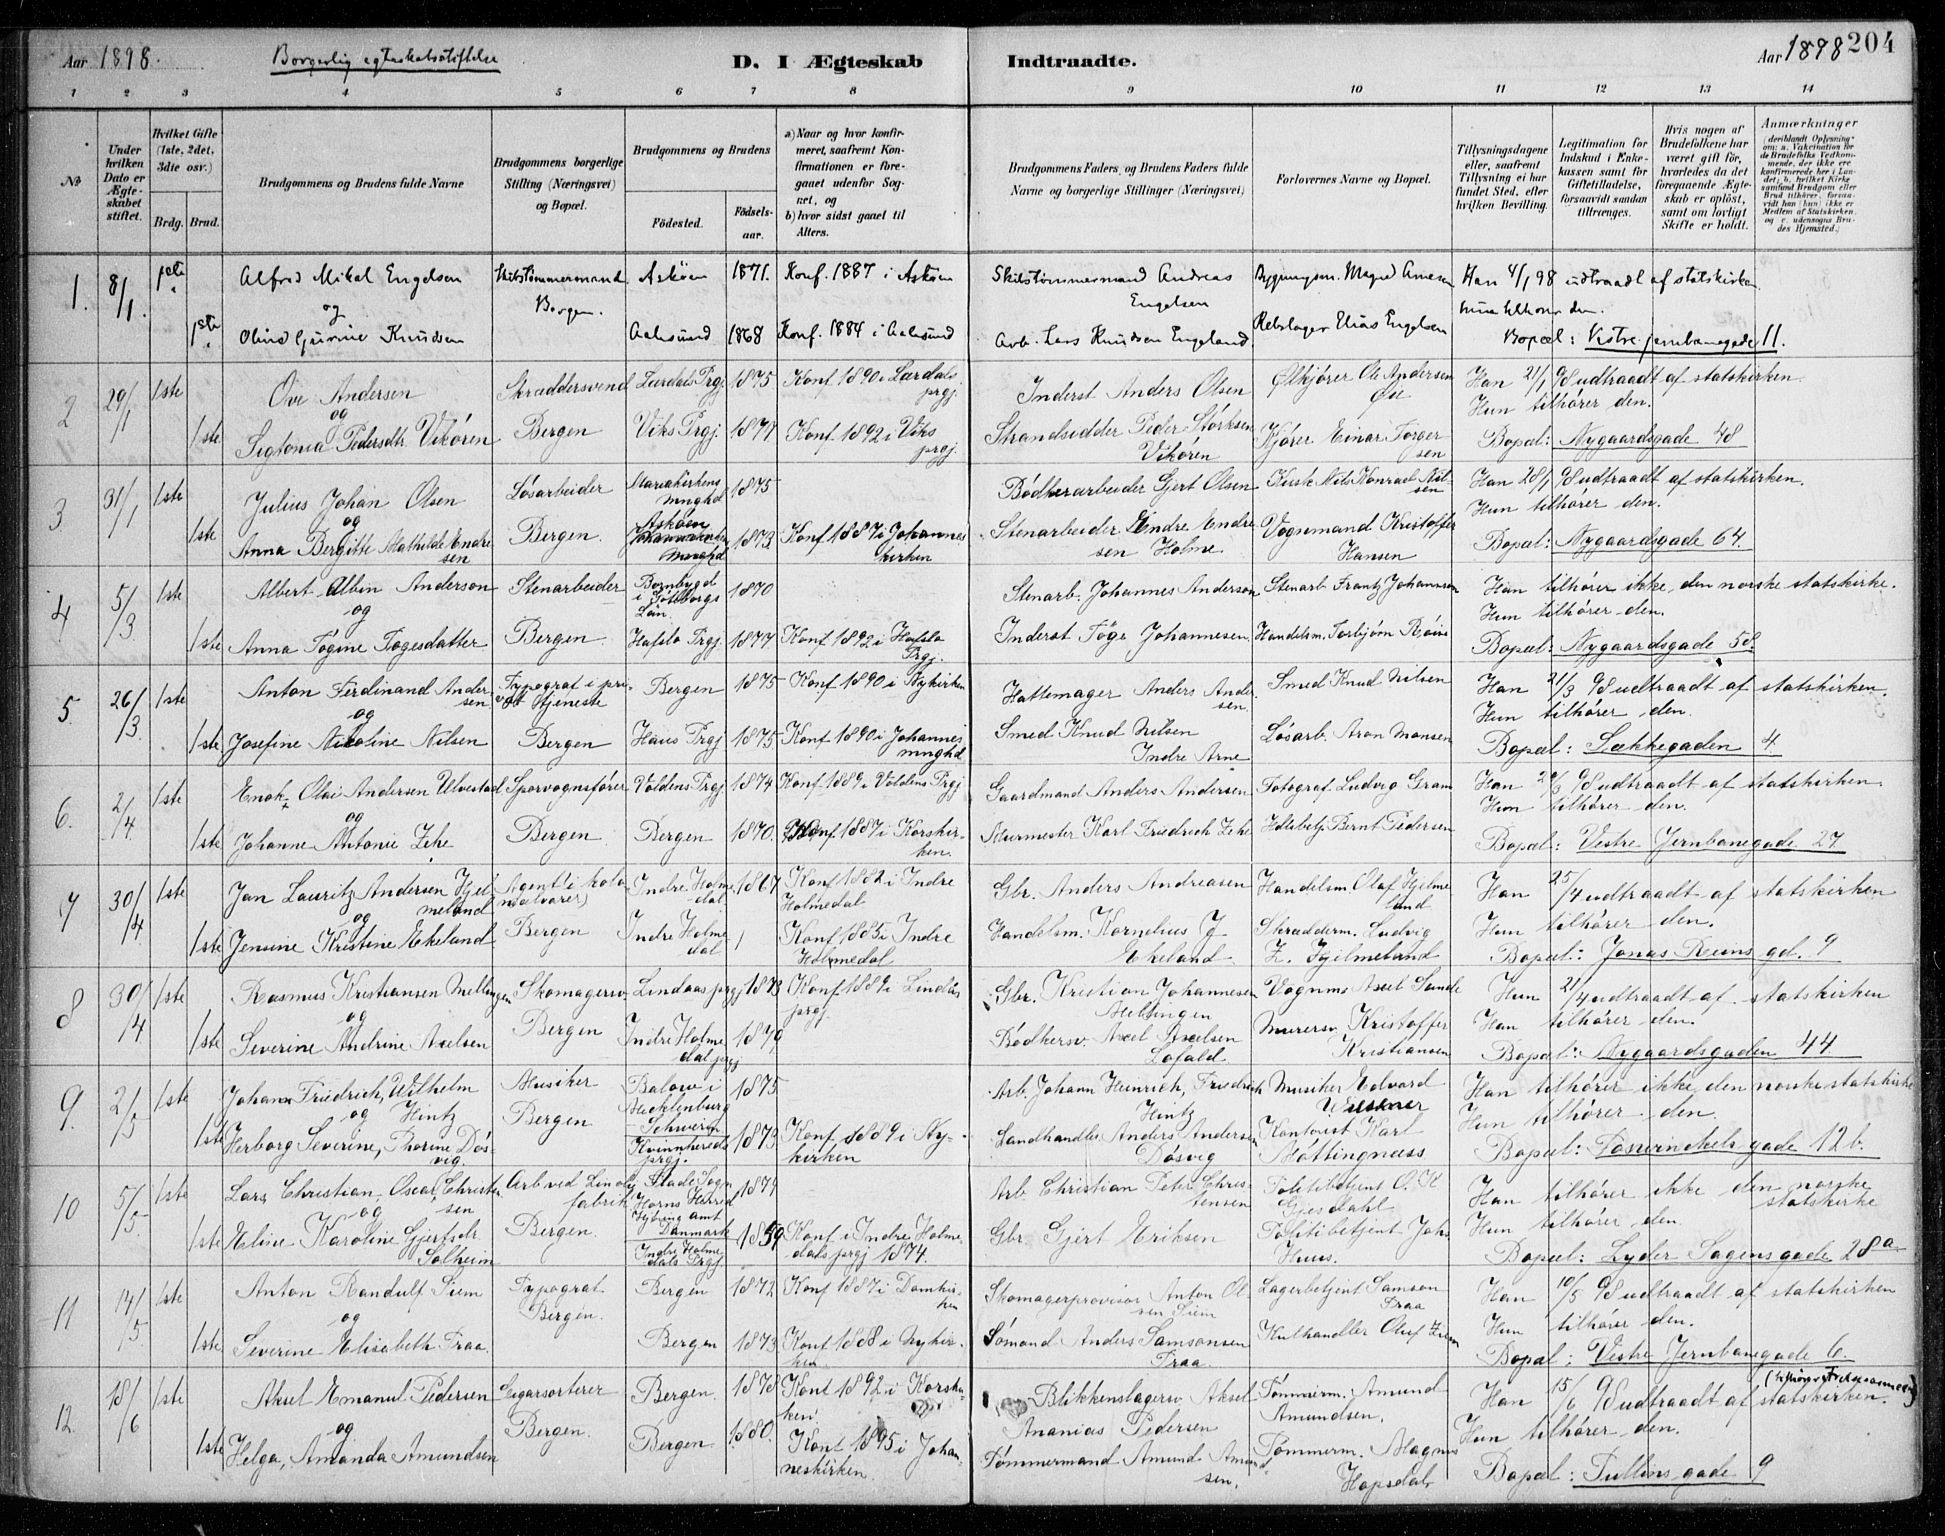 Aar 1898. Borgerlig egteskabsstiftelse D. I Ægteskab Indtraadte. Aar 1898 204
1 2 3 4 5 6 7 8 9 10 11 12 13 14
No
Under hvilken Dato er Ægteskabet stiftet.
Hvilket Gifte (1ste, 2det, 3die osv.)
Brdg. Brud.
Brudgommens og Brudens fulde Navne
Brudgommens borgerlige Stilling (Næringsvei) og Bopæl.
Brudgommens og Brudens
Fødested. Fødselsaar.
a) Naar og hvor konfirmeret, saafremt Konfirmationen er foregaaet udenfor Sognet, og
b) hvor sidst gaaet til Alters.
Brudgommens Faders, og Brudens Faders fulde Navne og borgerlige Stillinger (Næringsvei)
Forlovernes Navne og Bopæl.
Tillysningsdagene eller, saafremt Tillysning ei har fundet Sted, efter hvilken Bevilling.
Legitimation for Indskud i Enkekassen samt for Giftetilladelse, forsaavidt saadan tiltrænges.
Hvis nogen af Brudefolkene har været gift før, hvorledes da det foregaaende Ægteskab er opløst, samt om lovligt Skifte er holdt.
Anmærkninger
1. 8/1. 1ste Alfred Mikal Engelsen Skibstømmermand Askøen 1871. Konf. 1887 i Askøen Skibstømmermand Andreas Bygningsm. Magne Arnesen Han 4/1 98 udtraadt af statskirken
og Bergen. Engelsen Hun tilhører den.
1ste Oline Gurine Knudsen Aalesund 1868 Konf. 1884 i Aalesund Arb. Lars Knudsen Engeland Rebslager Elias Engelsen Bopæl: Vestre jernbanegade 11.
2 29/1 1ste Ove Andersen Skræddersvend Lærdals Prgj. 1875 Konf 1890 i Lærdals prgj. Inderst Anders Olsen Ølkjører Ole Andersen Øie Han 21/1 98 udtraadt af statskirken.
og Hun tilhører den.
1ste Sigtonia Pedersdtr. Vikøren Bergen Viks Prgj. 1877 Konf 1892 i Viks prgj. Strandsidder Peder Størksen Vikøren Kjører Einar Torgersen Bopæl: Nygaardsgade 48
3 31/1 1ste Julius Johan Olsen Løsarbeider Mariakirkens mnghd 1875 Bødkerarbeider Gjert Olsen Kusk Nils Konrad Nilsen Han 28/1 98 udtraadt af statskirken.
og Hun tilhører den.
1ste Anna Bergitte Mathilde Endresen Bergen. Askøen mnghd 1873 Konf 1887 i Johanneskirken Stenarbeider Endre Endresen Holme Vognmand Kristoffer Hansen Bopæl: Nygaardsgade 64.
4 5/3 1ste Albert Albin Anderson Stenarbeider i Gøteborgs Län. 1870 Stenarb. Johannes Anderson Stenarb Frantz Johannson Han tilhører ikke den norske statskirke.
og Hun tilhører den.
1ste Anna Tøgine Tøgesdatter Bergen Hafslo Prgj. 1877 Konf 1892 i Hafslo Prgj. Inderst Tøge Johannesen Handelsm. Torbjørn Bopæl: Nygaardsgade 58.
5. 26/3 1ste Anton Ferdinand Andersen Typograf i privat tjeneste Bergen 1875 Konf 1890 i Nykirken Hattemager Anders Andersen. Smed Knud Nilsen Han 21/3 98 udtraadt af statskirken.
og Hun tilhører den.
1ste Josefine Nikoline Nilsen Bergen Haus Prgj 1875 Konf 1890 i Johannes mnghd Smed Knud Nilsen Indre Arne Løsarb. Aron Monsen Bopæl: Sækkegaden 4.
6. 2/4. 1ste Enok Olai Andersen Ulvestad Sporvognsfører Voldens Prgj 1874 Konf 1889 i Voldens Prgj Gaardmand Anders Andersen Fotograf Ludvig Gram Han 98 udtraadt af statskirken
og Hun tilhører den.
1ste Johanne Antonie Zehe Bergen Bergen 1870. Konf 1887 i Korskirken. Murmester Karl Friedrich Zehe Bernt Pedersen Bopæl: Vestre Jernbanegade 27
7 30/4 1ste Jan Lauritz Andersen Hjelmeland Agent i kolonialvarer) Indre Holmedal 1867 Konf 1882 i Indre Holmedal Gbr. Anders Andreasen Handelsm Olaf Hjelmeland Han 25/4 udtraadt af statskirken
og Hun tilhører den.
1ste Jensine Kristine Ekeland Bergen Indre Holmedal Konf 1885 i Indre Holmedal Handelsm. Kornelius J Ekeland Skræderm. Ludvig Z. Bopæl: Jonas Reins gd. 9
8 30/4. 1ste Rasmus Kristiansen Mellingen Skomagersv. Lindaas prgj 1873 Konf 1889 i Lindaas prgj. Gbr. Kristian Johannesen Mellingen Vognm. Axel Sande Hun 21/4 udtraadt af statskirken
og Han tilhører den.
1ste Severine Andrine Axelsen Bergen Indre Holmedal prgj 1879 Bødkersv. Axel Axelsen Lofald Murersv. Kristoffer Kristiansen Bopæl: Nygaardsgaden 44
9. 2/5 1ste Johann Friedrich Wilhelm Hintz Musiker Mecklenburg Schwerin 1875 Arb. Johann Heinrich, Friedrich Hintz Musiker Edvard Han tilhører ikke den norske statskirke
og Hun tilhører den.
1ste Herborg Severine, Thorine Døsvig. Bergen Kvinnherreds prgj. 1873. Konf 1889 i Nykirken Landhandler Anders Andersen Døsvig Kontorist Karl Møttingnæss Bopæl: gade 12 b.
10 5/5 1ste Lars Christian Oscar Christensen Arb ved Stade Sogn Horns Herred Hjöring Amt Danmark 1874 Arb. Christian Peter Christensen Politibetjent O. K Gjesdahl Han tilhører ikke den norske statskirke
og Hun tilhører den.
1ste Eline Karoline Gjertsdr. Solheim Bergen. Indre Holmedals Prgj 1859 Konf i Indre Holmedals prgj 1874. Gbr Gjert Eriksen Politibetjent Johs Huus. Bopæl: Lyder Sagens gade 28a
11 14/5 1ste Anton Randulf Siem Typograf Bergen 1872 Konf 1887 i Domkirken Skomagerprovisor Anton Olsen Siem Lagerbetjent Samson Fraa Han 10/5 98 udtraadt af statskirken
og Bergen. Hun tilhører den.
1ste Severine Elisabeth Fraa. Bergen 1873 Konf 1888 i Nykirken. Sømand Anders Samsonsen Fraa. Kulhandler Oluf Bopæl: Vestre Jernbanegade 6.
12. 18/6 1ste Aksel Emanuel Pedersen Cigarsorterer Bergen. 1878 Konf 1892 i Korskirken. Blikkenslagersv Aksel Ananias Pedersen Tømmerm. Amund Amundsen. Han 15/6 98 udtraadt af statskirken.
og Bergen. Hun tilhører den.
1ste Helga, Amanda Amundsen Bergen 1880. Konf 1895 i Johanneskirken. Tømmermand Amund Amundsen. Tømmerm. Magnus Hopsdal Bopæl: Tullins gade 9